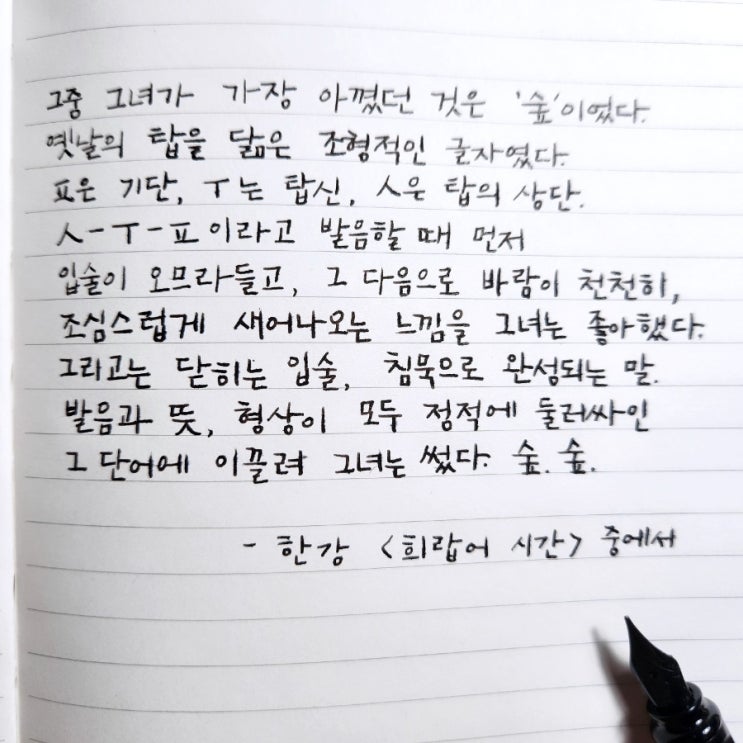 그중 그녀가 가장 아꼈던 것은 '숲'이었다.
옛날의 탑을 닮은 조형적인 글자였다.
ㅍ은 기단, ㅜ는 탑신, ㅅ은 탑의 상단.
ㅅ-ㅜ-ㅍ이라고 발음할 때 먼저
입술이 오므라들고, 그 다음으로 바람이 천천히,
조심스럽게 새어나오는 느낌을 그녀는 좋아했다.
그리고는 닫히는 입술, 침묵으로 완성되는 말.
발음과 뜻, 형상이 모두 정적에 둘러싸인
그 단어에 이끌려 그녀는 썼다. 숲. 숲.
- 한강 <희랍어 시간> 중에서